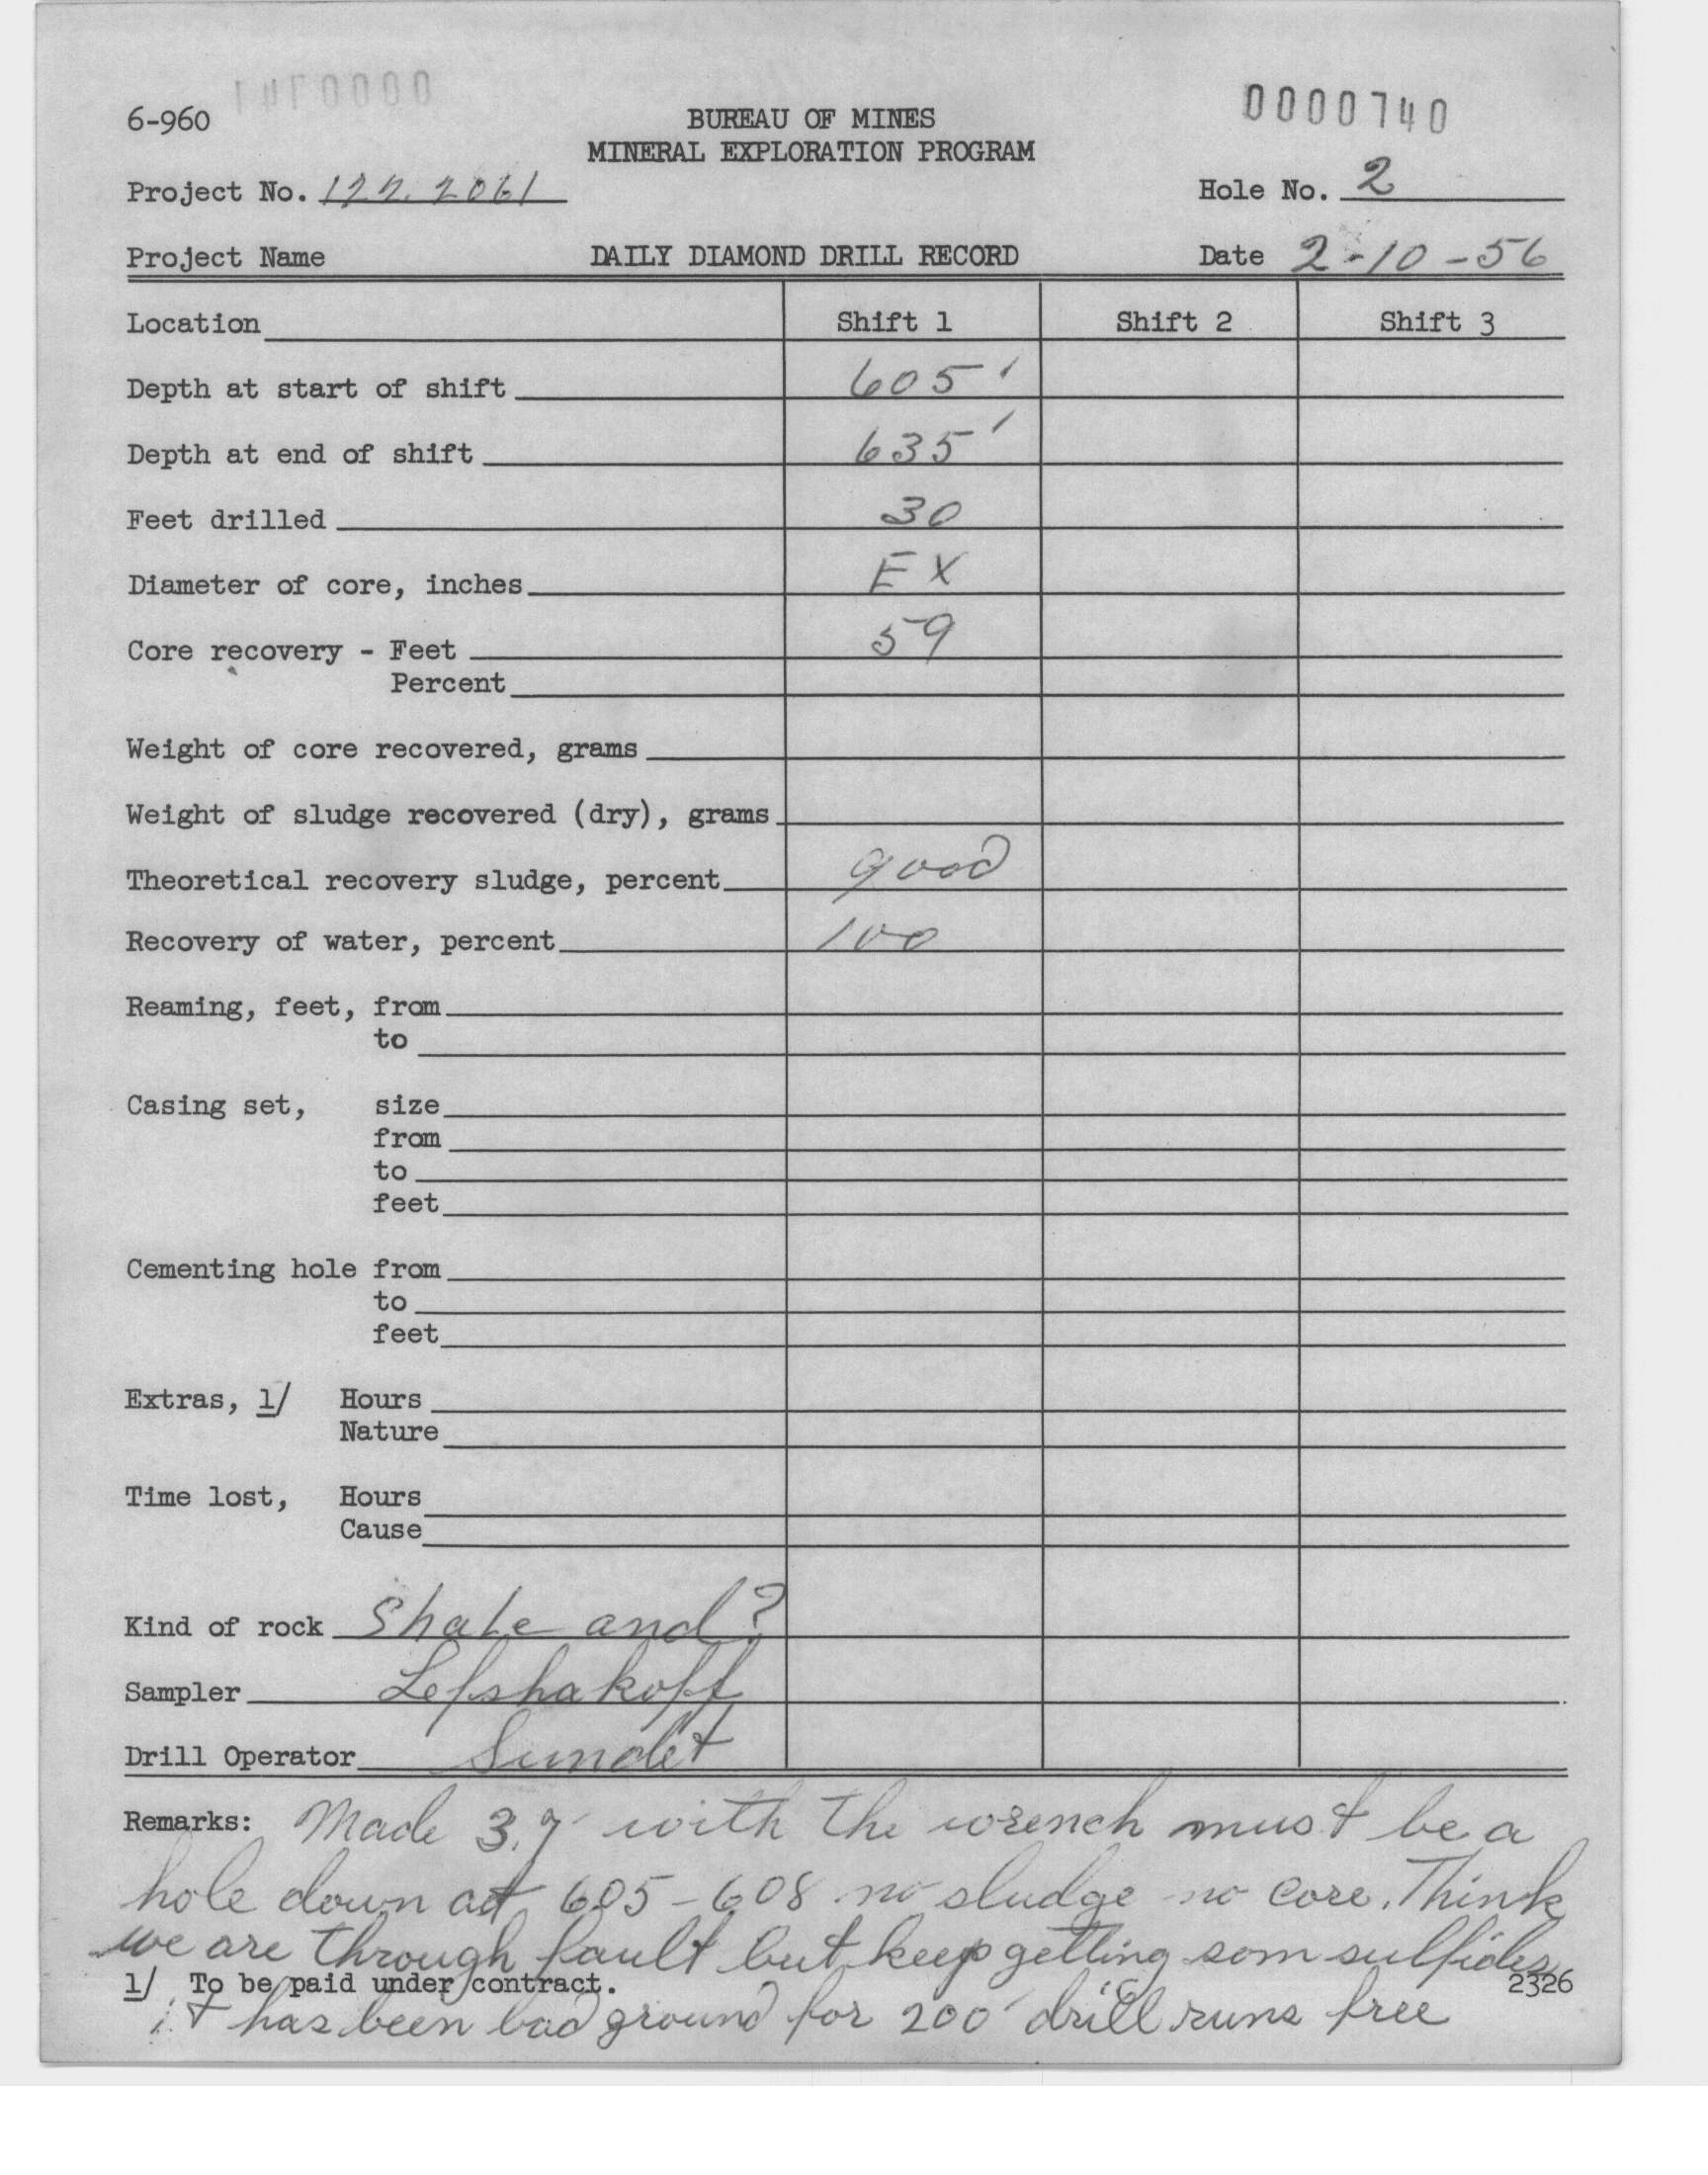 6-960
BUREAU OF MINES
0000740
MINERAL EXPLORATION PROGRAM
Project No. 122.2061
Hole No. 2
Project Name DAILY DIAMOND DRILL RECORD Date 2-10-56
Location Shift 1 Shift 2 Shift 3
Depth at start of shift 605'
Depth at end of shift 635'
Feet drilled 30
Diameter of core, inches EX
Core recovery - Feet 59
Percent
Weight of core recovered, grams
Weight of sludge recovered (dry), grams
Theoretical recovery sludge, percent good
Recovery of water, percent 100
Reaming, feet, from
to
Casing set, size
from
to
feet
Cementing hole from
to
feet
Extras, 1/ Hours
Nature
Time lost, Hours
Cause
Kind of rock Shale and ?
Sampler Lefshakoff
Drill Operator Sundet
Remarks: Made 3.7 with the wrench must be a
hole down at 605-608 no sludge no core. Think
we are through fault but keep getting som sulfides
1/ To be paid under contract. 2326
it has been bad ground for 200' drill runs free